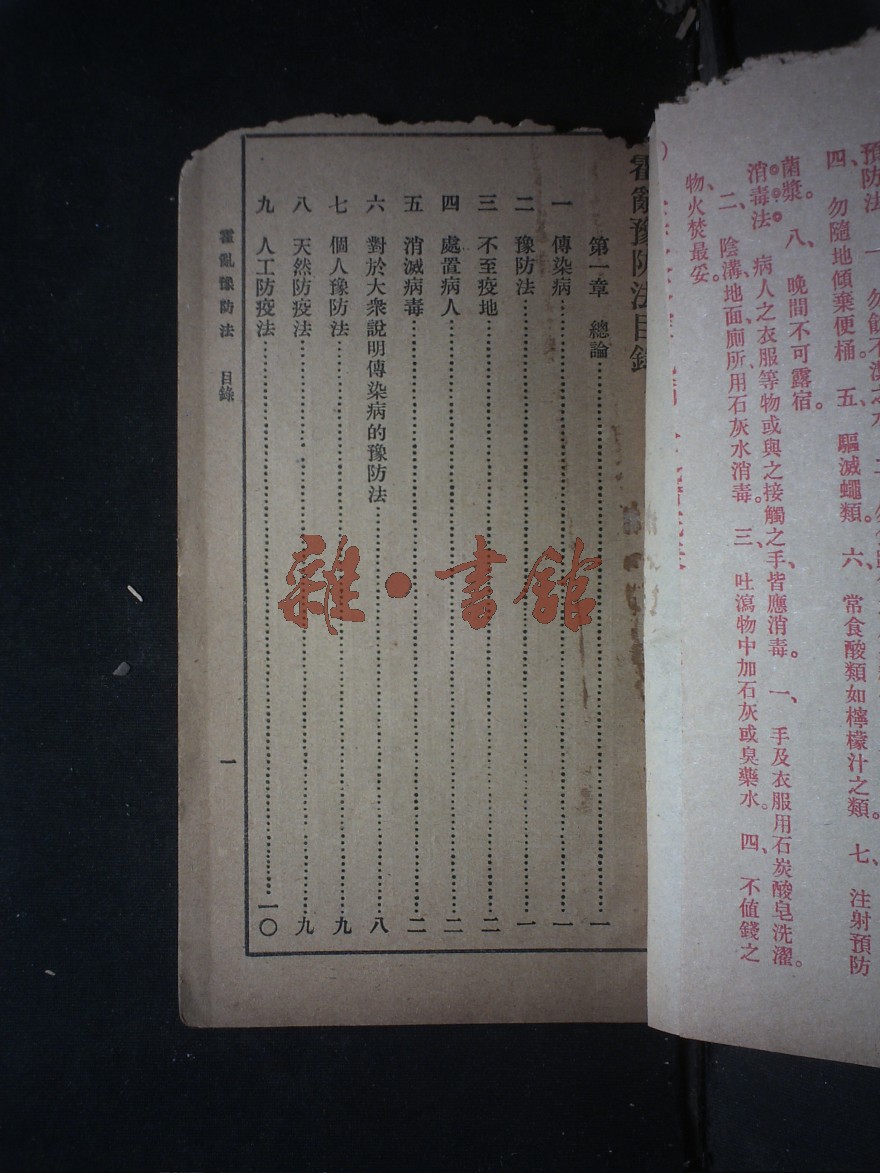 預防法 一、勿飲不潔之水
四、勿隨地傾棄便桶。五、驅滅蠅類。六、常食酸類如檸檬汁之類。七、注射預防
菌漿。八、晚間不可露宿。
消毒法 病人之衣服等物或與之接觸之手、皆應消毒。一、手及衣服用石炭酸皂洗濯。
二、陰溝、地面、廁所用石灰水消毒。三、吐瀉物中加石灰或臭藥水。四、不値錢之
物、火焚最妥。
霍亂豫防法目錄
第一章 總論……一
一 傳染病……一
二 豫防法……一
三 不至疫地……二
四 處置病人……二
五 消滅病毒……二
六 對於大衆說明傳染病的豫防法……八
七 個人豫防法……九
八 天然防疫法……九
九 人工防疫法……一〇
霍亂豫防法 目錄 一
雜·書館